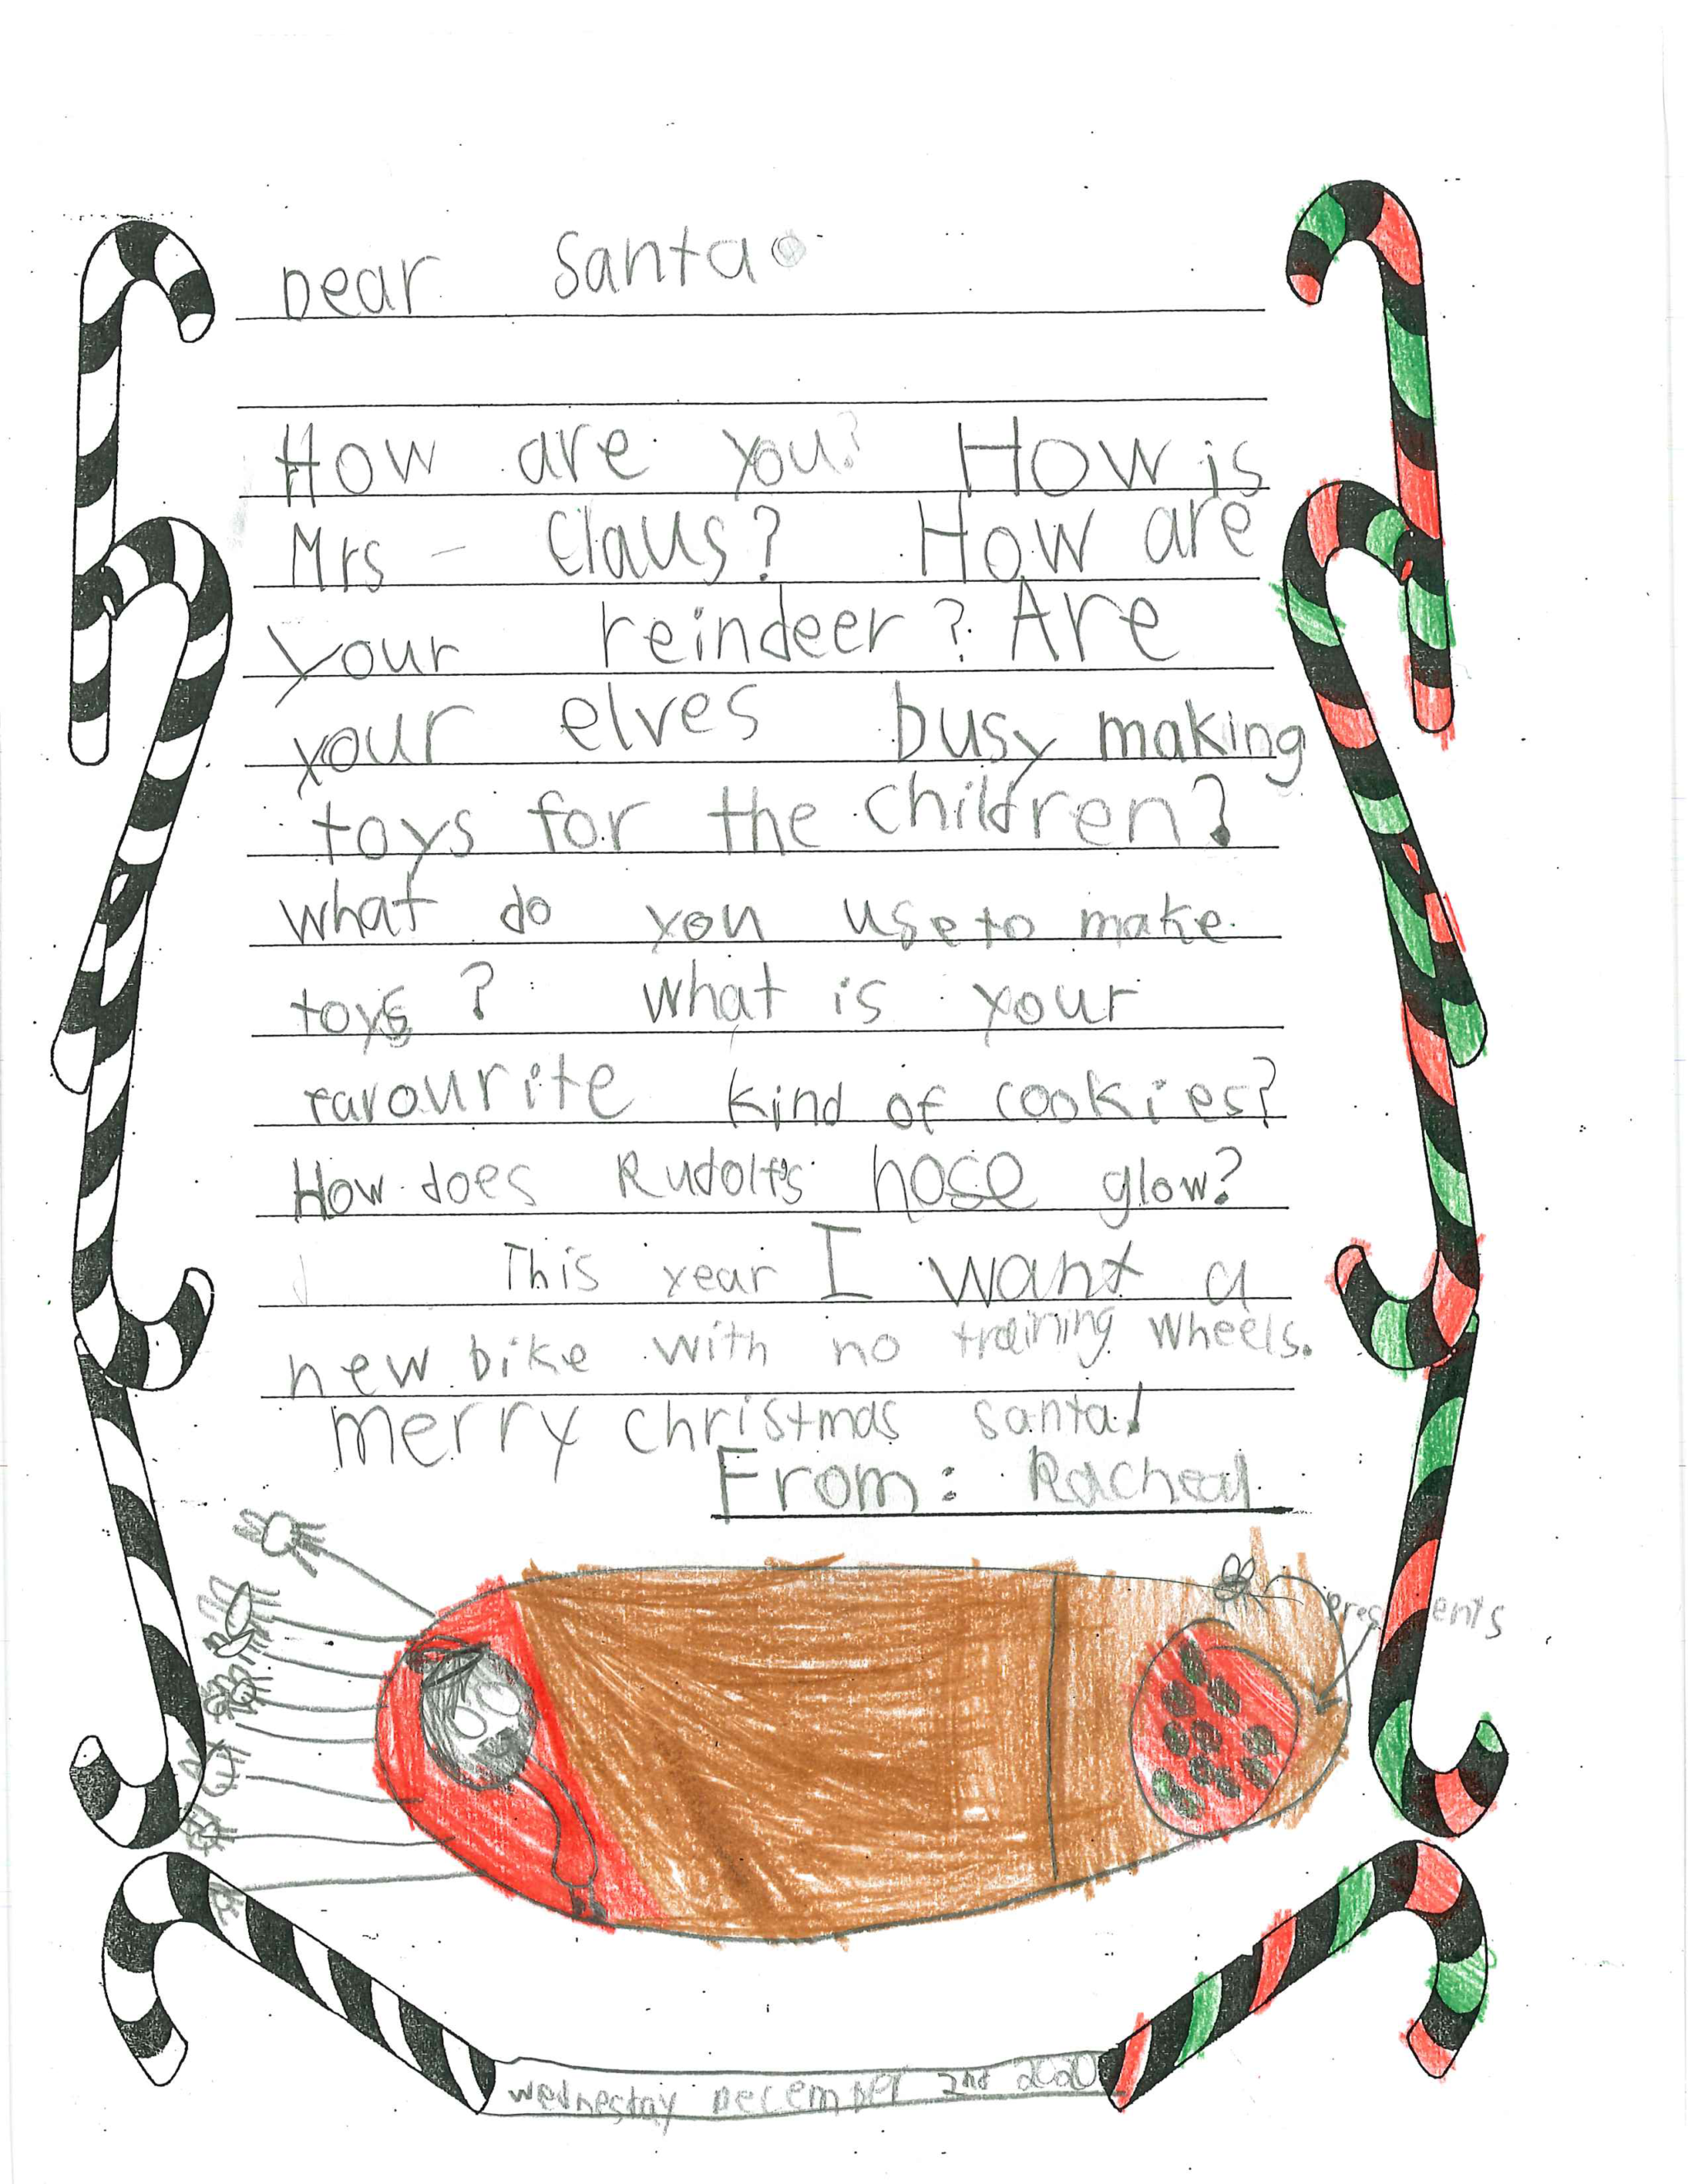 Dear Santa
How are you? How is
Mrs - Claus? How are
your reindeer? Are
your elves busy making
toys for the children?
what do you use to make
toys? what is your
favourite kind of cookies?
How does Rudolf's nose glow?
This year I want a
new bike with no training wheels.
merry christmas santa!
From: Racheal
presents
wednesday December 2nd 2020